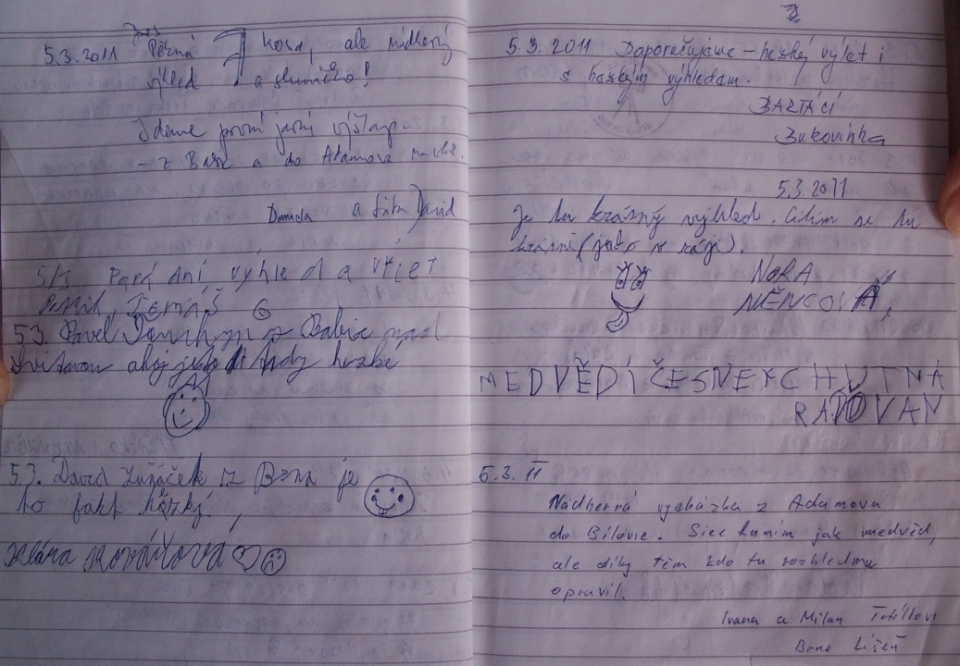 5.3.2011 Pěkná kosa, ale nádherný
výhled a sluníčko!
Jdeme první jarní výšlap
– z a do Adamova
Daniela a táta David
5/3 Parádní, výhled a výlet
TOMÁŠ
5.3. Pavel z Babic nad
Svitavou ahoj je tady hezke
5.3. David z Brna je
to fakt hezký,
Klára
5.3.2011 Doporučujeme – hezký výlet i
s hezkým výhledem.
BARŤÁCI
Bukovinka
5.3.2011
Je tu krásný výhled. Cítím se tu
krásně (jako v ráji).
NORA
NĚNCOVÁ,
MEDVĚDÍ ČESNEK CHUTNÁ
RADOVAN
5.3. 11
Nádherná vycházka z Adamova
do Bílovic. Sice funím jak medvěd,
ale díky těm kdo tu rozhlednu
opravil.
Ivana a Milan
Brno Líšeň